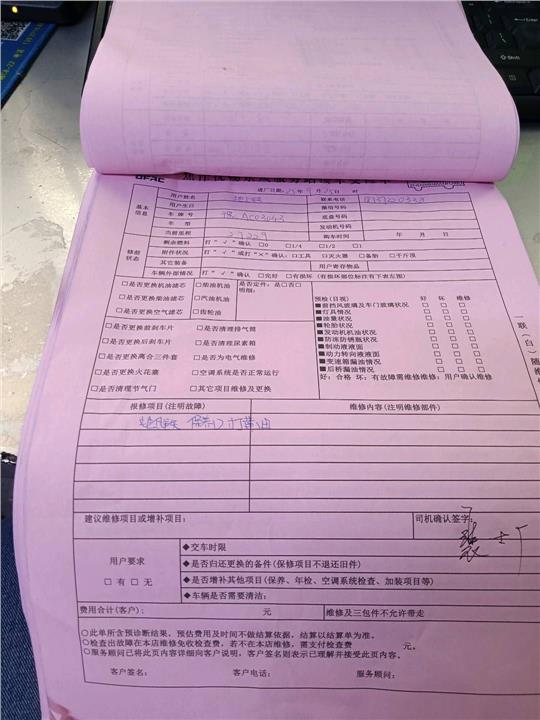 GPAC
进厂日期:25年9月25日 时
基本信息
用户姓名 联系电话
用户生日 微信号码
车牌号 豫AC03043 底盘号码
车型 发动机号码
当前里程 27229 购车时间 年 月 日
修前状态
剩余燃料 打“√”确认 □0 □1/4 □1/2 □1
附件状况 打“√”或打“×”确认:□工具 □灭火器 □备胎 □千斤顶
其它装备 用户寄存物品
车辆外部情况 打“√”确认 □完好 □有损坏(有损坏部位标注有下表左图)
□是否更换机油滤芯 □柴油机油 是否定件:是□否□
□是否更换柴油滤芯 □汽油机油 明细:
□是否更换空气滤芯 □齿轮油
□是否更换前刹车片 □是否清理排气筒
□是否更换后刹车片 □是否清理尿素箱
□是否更换离合三件套 □是否为电气维修
□是否更换火花塞 □空调系统是否正常运行
□是否清理节气门 □其它项目维修及更换
预检(目视) 好 坏 维修
■前挡风玻璃及车门玻璃状况 □ □ □
■灯具情况 □ □ □
■油量状况 □ □ □
■轮胎状况 □ □ □
■发动机机油状况 □ □ □
■防冻防锈瓶状况 □ □ □
■制动液液面 □ □ □
■动力转向液液面 □ □ □
■变速箱漏油情况 □ □ □
■后桥漏油情况 □ □ □
好:合格 坏:有故障需维修维修:用户确认维修
一联(白)随维
报修项目(注明故障) 维修内容(注明维修部件)
保养 打黄油
建议维修项目或增补项目: 司机确认签字:
用户要求
□有 □无
◆交车时限
◆是否归还更换的备件(保修项目不退还旧件)
◆是否增补其他项目(保养、年检、空调系统检查、加装项目等)
◆车辆是否需要清洁:
费用合计(客户): 元 维修及三包件不允许带走
○此单所含预诊断结果,预估费用及时间不做结算依据,结算以结算单为准。
○检查出故障在本店维修免收检查费,若不在本店维修,需支付检查费 元。
○服务顾问已将此页内容详细向客户说明,客户签名则表示已理解并接受此页内容。
客户签名: 客户电话: 服务顾问: